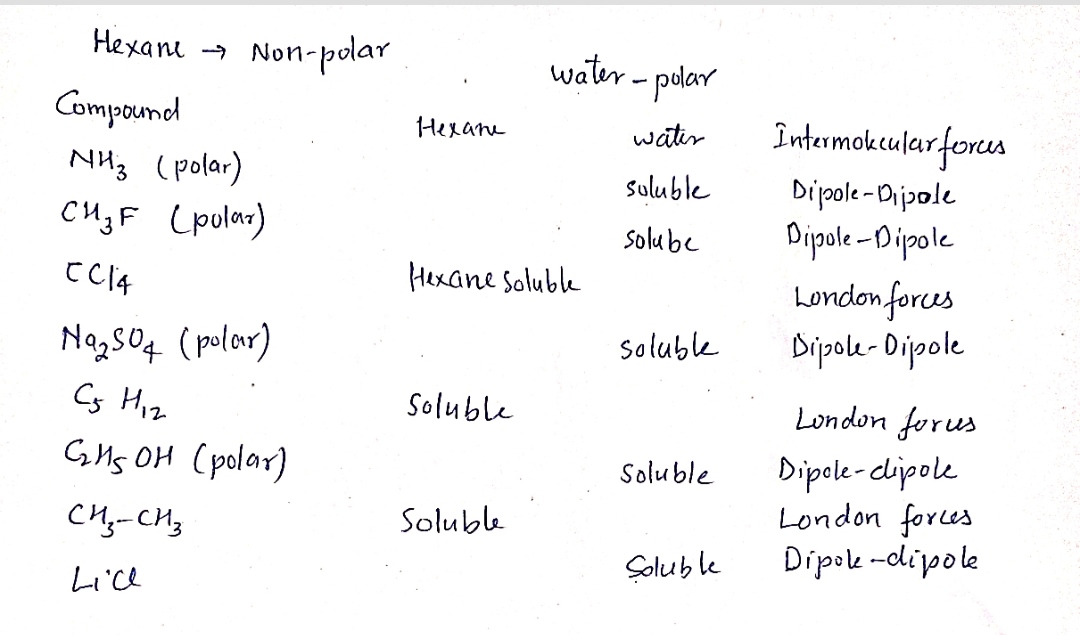 Hexane → Non-polar
water - polar
Compound Hexane water Intermolecular forces
NH3 (polar) soluble Dipole-Dipole
CH3F (polar) solube Dipole-Dipole
CCl4 Hexane soluble London forces
Na2SO4 (polar) soluble Dipole-Dipole
C5 H12 Soluble London forces
C2H5 OH (polar) Soluble Dipole-dipole
CH3-CH3 Soluble London forces
Licl Soluble Dipole-dipole